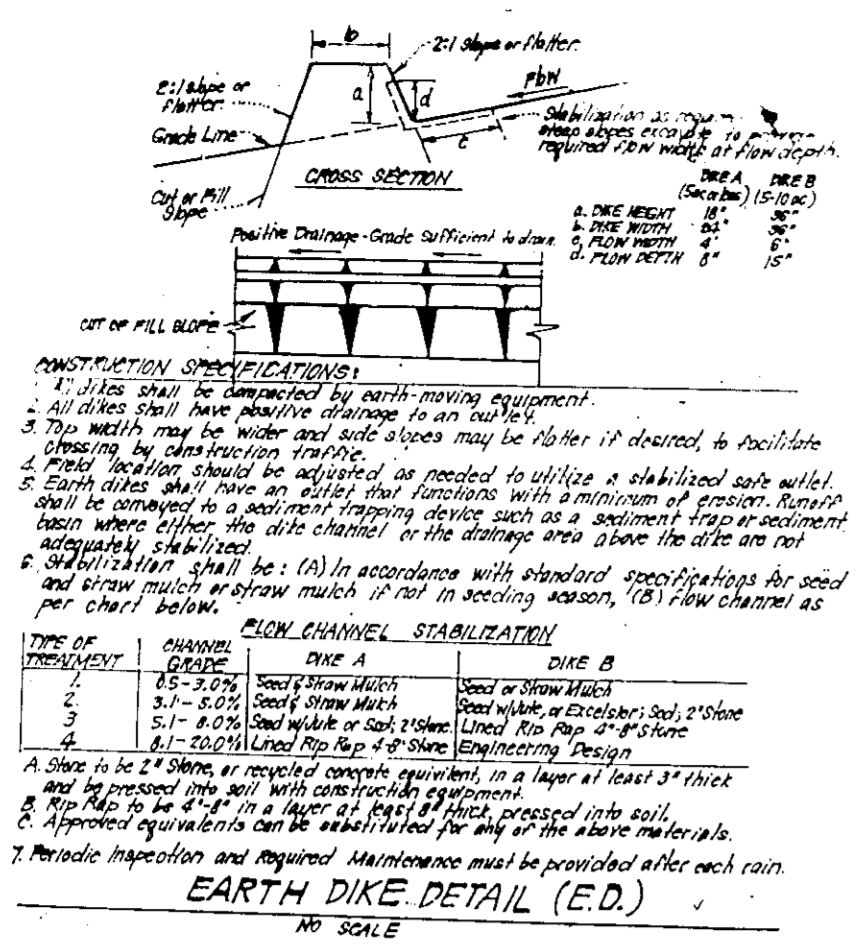 b
2:1 slope or flatter.
Flow
2:1 slope or
flatter.
a
d
Grade Line
c
Stabilization as
steep slopes excavate to
required flow width at flow depth.
CROSS SECTION
Cut or Fill
Slope
DIKE A DIKE B
(5 ac or less) (5-10 ac)
a. DIKE HEIGHT 18" 36"
b. DIKE WIDTH 24" 36"
c. FLOW WIDTH 4' 6'
d. FLOW DEPTH 8" 15"
Positive Drainage-Grade Sufficient to drain.
CUT OF FILL SLOPE
CONSTRUCTION SPECIFICATIONS:
All dikes shall be compacted by earth-moving equipment.
2. All dikes shall have positive drainage to an outlet.
3. Top width may be wider and side slopes may be flatter if desired, to facilitate
crossing by construction traffic.
4. Field location should be adjusted as needed to utilize a stabilized safe outlet.
5. Earth dikes shall have an outlet that functions with a minimum of erosion. Runoff
shall be conveyed to a sediment trapping device such as a sediment trap or sediment
basin where either the dike channel or the drainage area above the dike are not
adequately stabilized.
6. Stabilization shall be: (A) In accordance with standard specifications for seed
and straw mulch or straw mulch if not in seeding season, (B) flow channel as
per chart below.
FLOW CHANNEL STABILIZATION
TYPE OF TREATMENT CHANNEL GRADE DIKE A DIKE B
1. 0.5-3.0% Seed & Straw Mulch Seed or Straw Mulch
2. 3.1-5.0% Seed & Straw Mulch Seed w/Jute, or Excelsior; Sod; 2" Stone
3 5.1-8.0% Seed w/Jute or Sod; 2" Stone. Lined Rip Rap 4"-8" Stone
4. 8.1-20.0% Lined Rip Rap 4-8" Stone Engineering Design
A. Stone to be 2" Stone, or recycled concrete equivilent, in a layer at least 3" thick
and be pressed into soil with construction equipment.
B. Rip Rap to be 4"-8" in a layer at least 8" thick, pressed into soil.
C. Approved equivalents can be substituted for any of the above materials.
7. Periodic Inspection and Required Maintenance must be provided after each rain.
EARTH DIKE DETAIL (E.D.)
NO SCALE